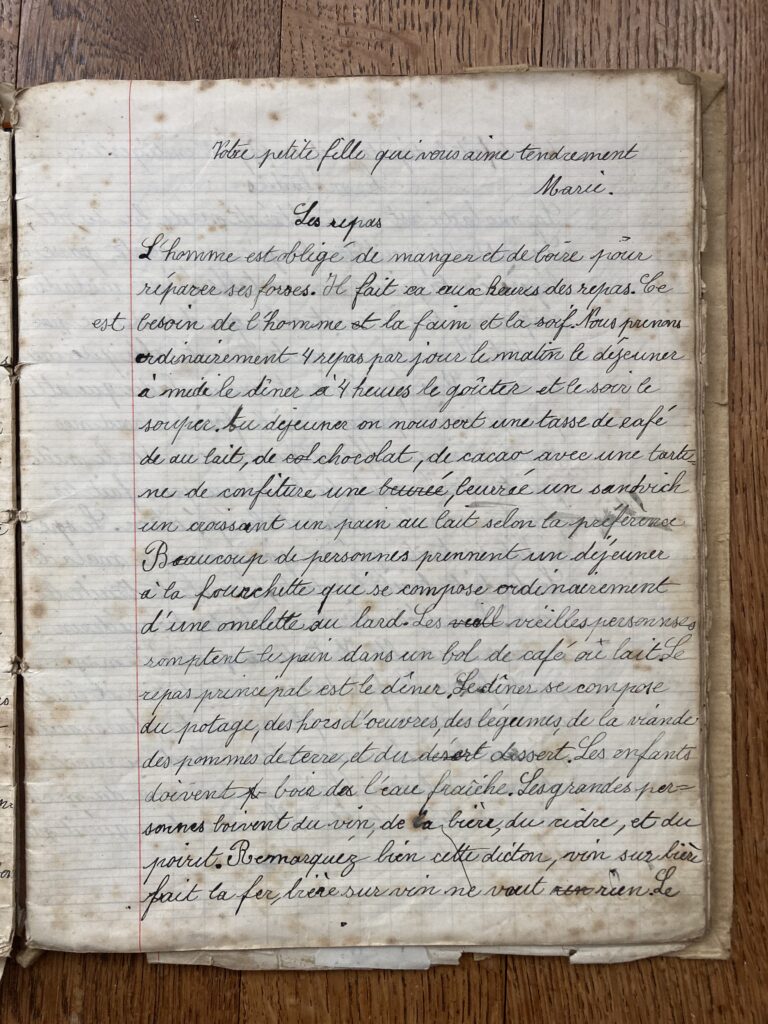 Votre petite fille qui vous aime tendrement
Marie.
Les repas
L'homme est obligé de manger et de boire pour
réparer ses forses. Il fait ca aux heures des repas. Ce
est besoin de l'homme et la faim et la soif. Nous prenons
ordinairement 4 repas par jour le matin le déjeuner
à midi le dîner à 4 heures le goûter et le soir le
souper. Au déjeuner on nous sert une tasse de café
de au lait, de col chocolat, de cacao avec une tarti-
ne de confiture une beureé, beurrée un sandvich
un croissant un pain au lait selon la préférence
Beaucoup de personnes prennent un déjeuner
à la fourchette qui se compose ordinairement
d'une omelette au lard. Les vieill vieilles personnes
romptent le pain dans un bol de café au lait. Le
repas principal est le dîner. Le dîner se compose
du potage, des hors d'oeuvres, des légumes, de la viande
des pommes de terre, et du désert dessert. Les enfants
doivent boir de l'eau fraîche. Les grandes per-
sonnes boivent du vin, de la bière, du cidre, et du
poiret. Remarquéz bien cette dicton, vin sur bière
fait la fer, bière sur vin ne vaut rien. Le